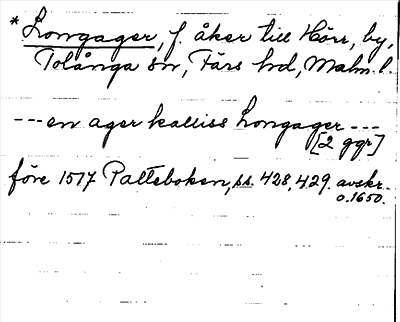 * Longager, f. åker till Hörr, by,
Tolånga sn, Färs hd, Malm. l.
--- en ager kalliss Longager ---
[2 ggr]
före 1517 Palteboken, ss. 428, 429. avskr.
o. 1650.